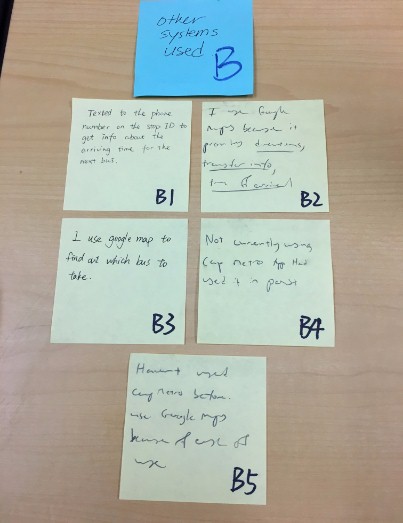 other
systems
used
B
Texted to the phone
number on the stop ID to
get info about the
arriving time for the
next bus.
B1
I use Google
Maps because it
provides directions,
transfer info,
B2
I use google map to
find out which bus to
take.
B3
Not currently using
Cap Metro App. Had
used it in past
B4
Haven't used
Cap Metro before.
use Google Maps
because of ease of
use
B5